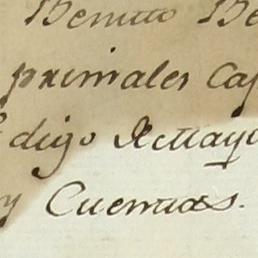 Benito Be
primales Cap
digo
y Cuentas.